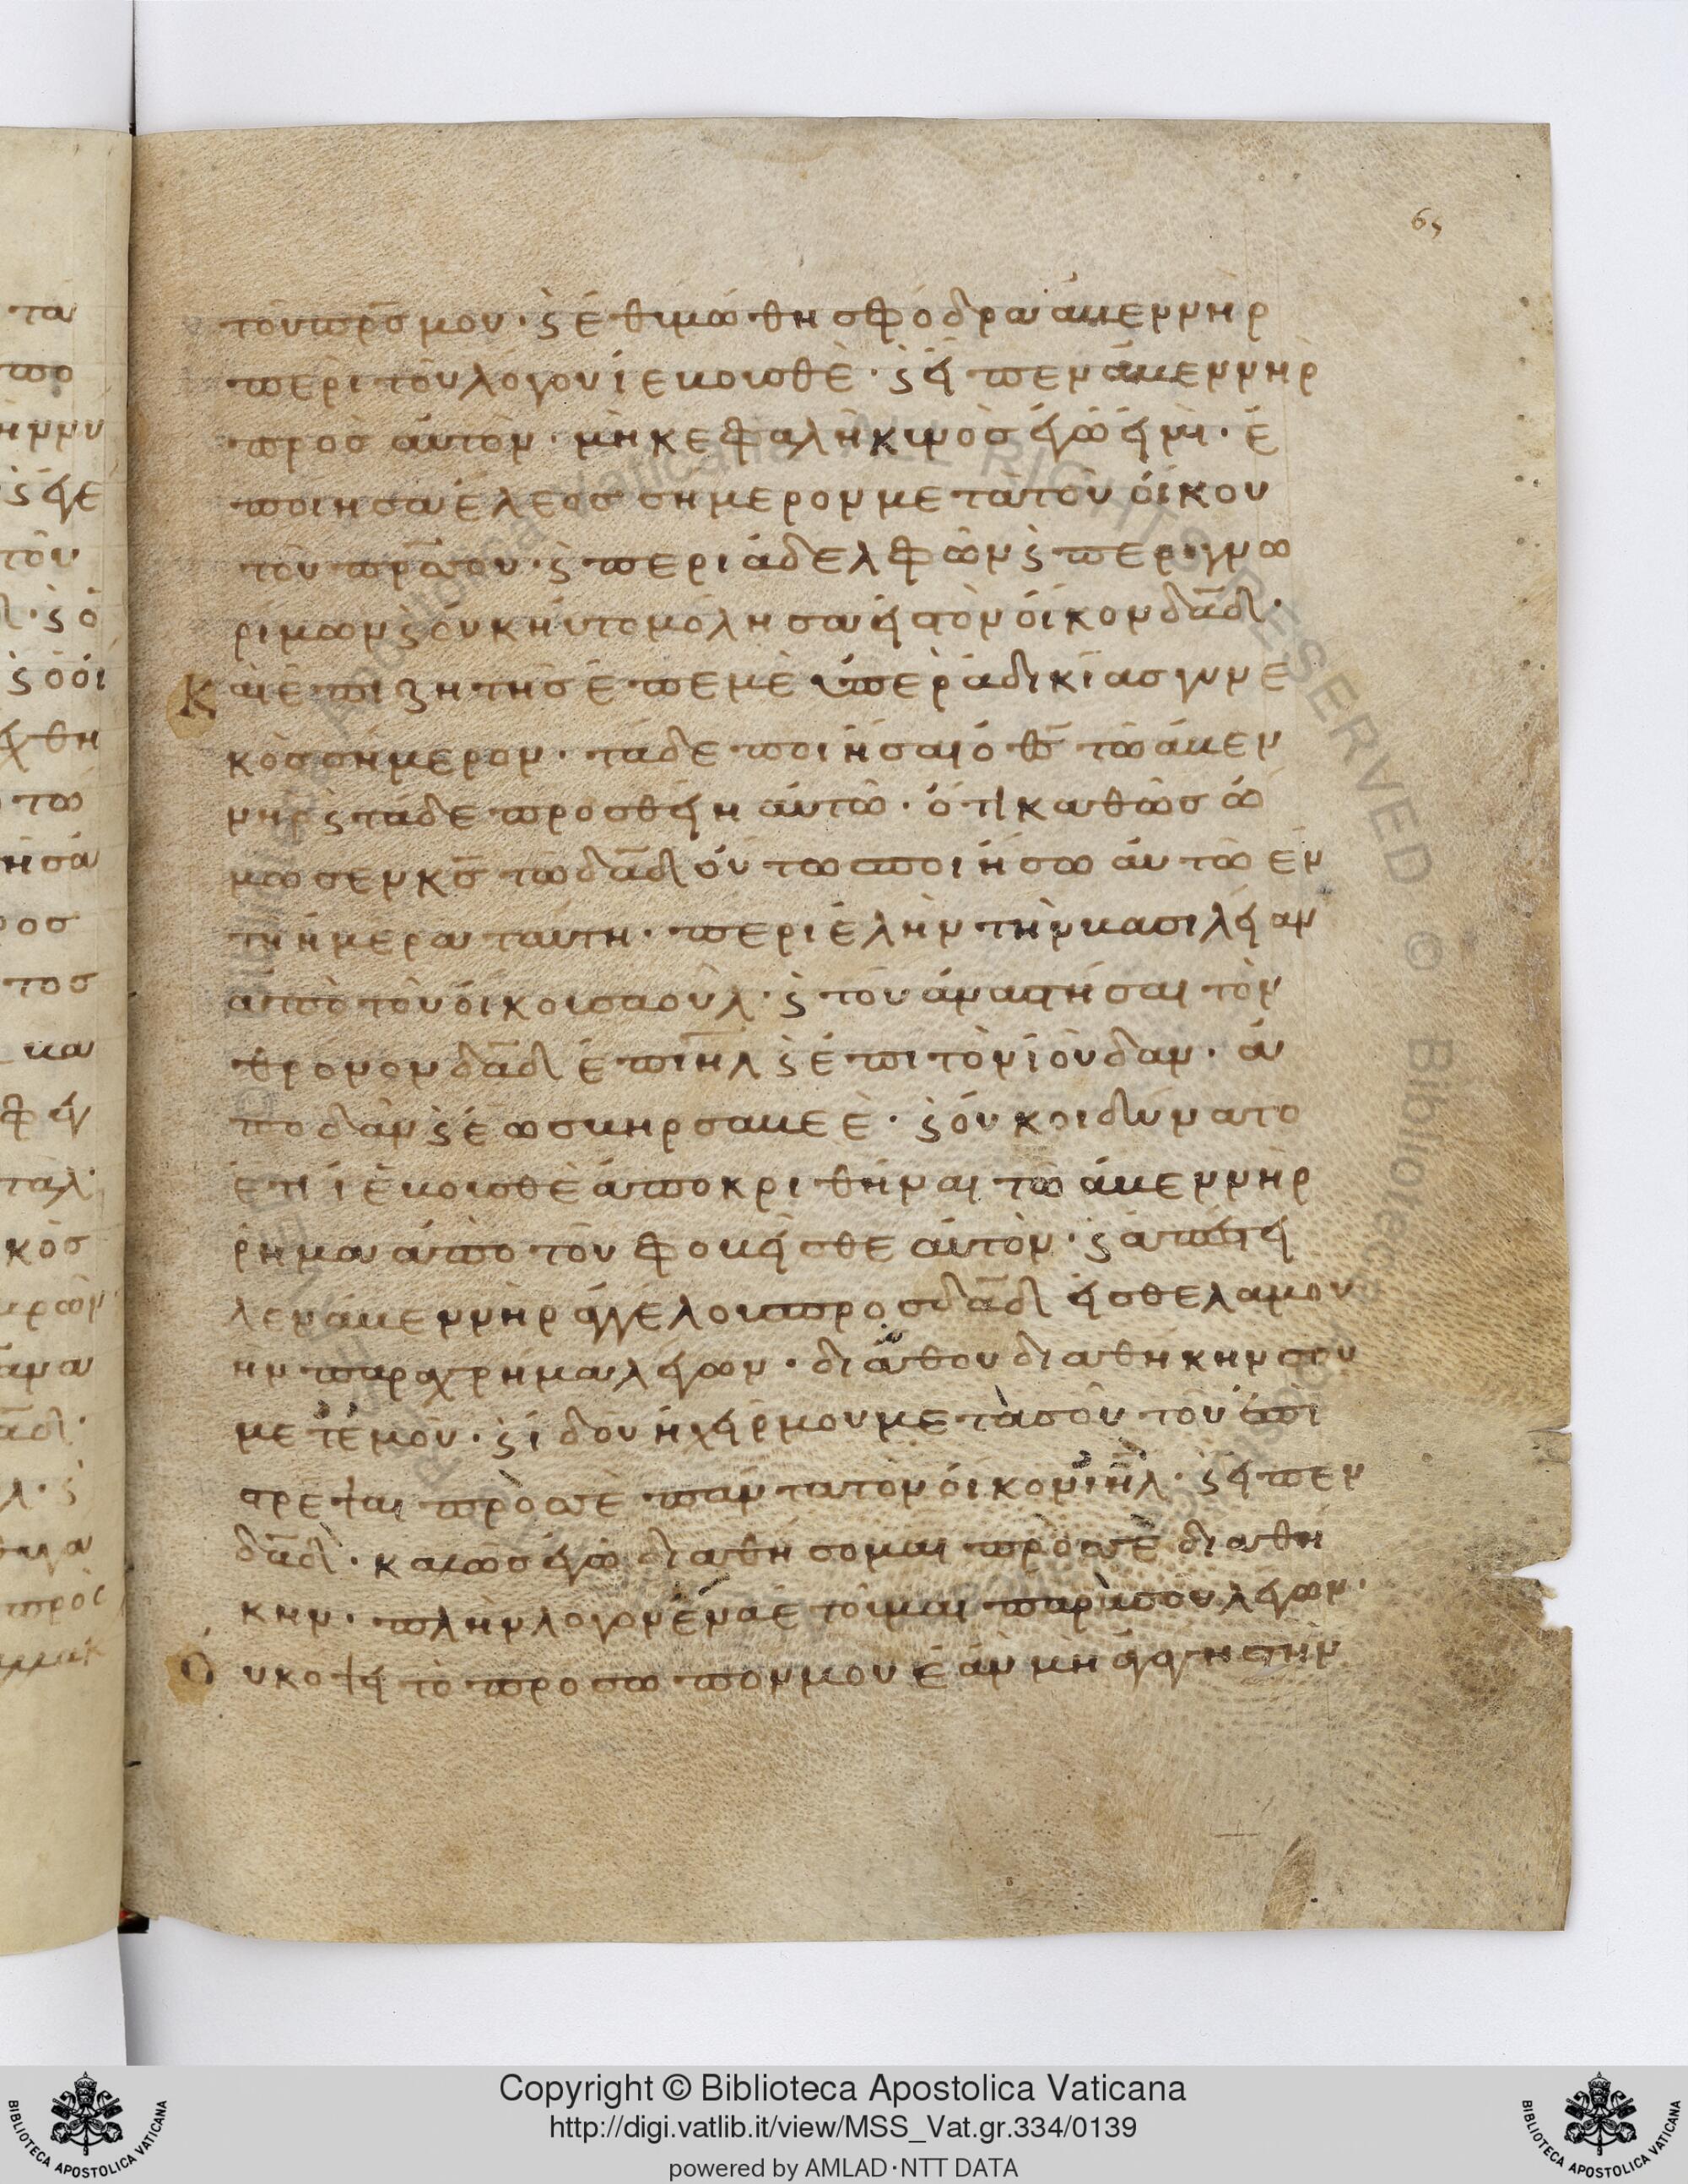 65
τοῦ πρ̅ς μου· ϛ ἐθυμώθη σφόδρα ἀβεννὴρ
περὶ τοῦ λόγου ἰεβοισθὲ· ϛ εἶπεν ἀβεννὴρ
προσ αὐτὸν· μὴ κεφαλὴ κυνὸσ ἐγώ εἰμι· ἐ
ποίησα ἔλεοσ σήμερον μετὰ τοῦ οἴκου
τοῦ πρ̅σ σου· ϛ περι ἀδελφῶν ϛ περι γνω
ρίμων ϛ οὐκ ηὐτομόλησα εἰσ τὸν οἶκον δᾱδ·
Καὶ ἐπιζητῆσ ἐπ εμὲ ὑπὲρ ἀδικίασ γυνε
κὸσ σήμερον· τάδε ποιήσαι ὁ θ̅ς τῶ ἀβεν
νὴρ ϛ τάδε προσθείη αὐτῶ· ὅτι καθὼσ ὤ
μωσεν κ̅ς τῶ δᾱδ οὕτω ποιήσω αὐτῶ ἐν
τῆ ἡμέρα ταύτη· περιελῆν τὴν βασιλείαν
ἀπὸ τοῦ οἴκου σαοὺλ· ϛ τοῦ ἀναστήσαι τὸν
θρονον δᾱδ ἐπὶ ιη̅λ ϛ ἐπι τὸν ἰούδαν· ἀ
πο δὰν ϛ ἕωσ βηρσαβεὲ· ϛ οὐκ οιδύνατο
έτι ἰεβοισθὲ ἀποκριθῆναι τῶ ἀβεννὴρ
ρῆμα ἀπο τοῦ φοβεῖσθε αὐτὸν· ϛ ἀπέστει
λεν ἀβεννὴρ ἀγγέλουσ προσ δᾱδ εἰσ θελαμου
ὴν παραχρῆμα λέγων· διάθου διαθήκην σου
μετ ἐμοῦ· ϛ ἰδου ἡ χείρ μου μετὰ σοῦ τοῦ ἐπι
στρεψαι πρὸσ σὲ πάντα τὸν οἶκον ιη̅λ· ϛ εἶπεν
δᾱδ· καλῶσ ἐγὼ διαθήσομαι πρὸσ σὲ διαθή
κην· πλὴν λογον ἕνα αἰτοῦμαι παρὰ σοῦ λέγων·
Οὐκ οψει τὸ προσωπον μου ἐὰν μὴ ἀγάγησ τὴν
Copyright © Biblioteca Apostolica Vaticana
http://digi.vatlib.it/view/MSS_Vat.gr.334/0139
powered by AMLAD·NTT DATA
BIBLIOTECA APOSTOLICA VATICANA
BIBLIOTECA APOSTOLICA VATICANA